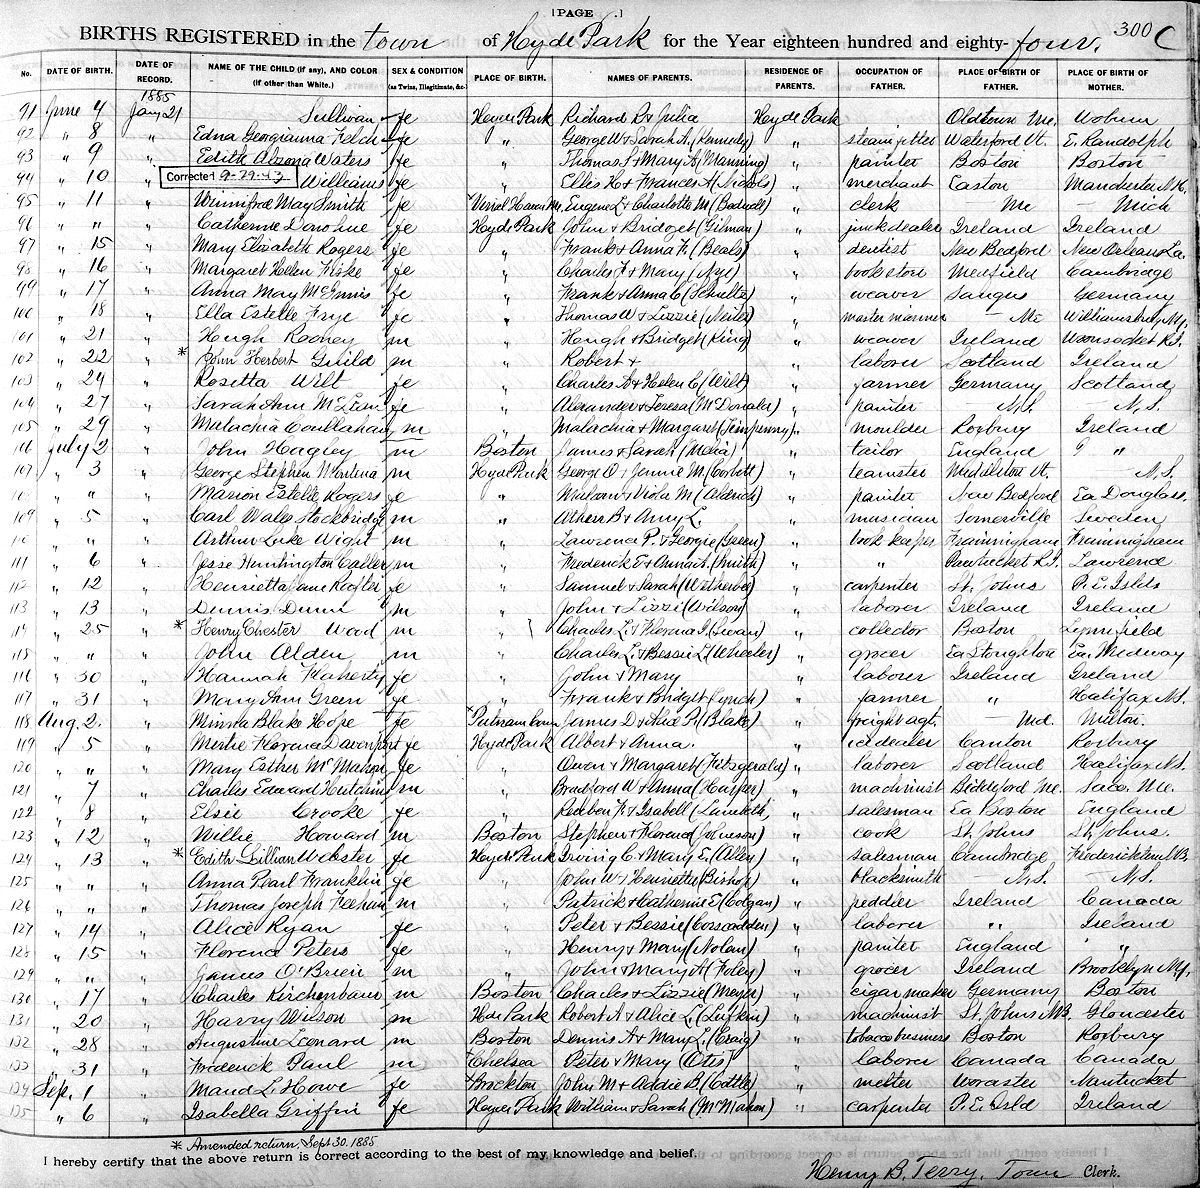 [PAGE .]
300 C
BIRTHS REGISTERED in the town of Hyde Park for the Year eighteen hundred and eighty-four.
No. DATE OF BIRTH. DATE OF RECORD. NAME OF THE CHILD (if any), AND COLOR (if other than White.) SEX & CONDITION (as Twins, Illegitimate, &c.) PLACE OF BIRTH. NAMES OF PARENTS. RESIDENCE OF PARENTS. OCCUPATION OF FATHER. PLACE OF BIRTH OF FATHER. PLACE OF BIRTH OF MOTHER.
1885
91 June 4 Jany 21 Sullivan fe Hyde Park Richard & Julia Hyde Park Oldtown Me. Woburn
92 " 8 " Edna Georgianna Felch fe " George W & Sarah A. (Kennedy) " steamfitter Waterford Vt. E. Randolph
93 " 9 " Edith Waters fe " Thomas & Mary A (Manning) " painter Boston Boston
94 " 10 " Corrected 9-29-43 Williams fe " Ellis H & Frances A (Nichols) " merchant Easton Manchester N.H.
95 " 11 " Winnifred May Smith fe Me. Eugene L & Charlotte M " clerk Me Mich
96 " " " Catherine Donohue fe Hyde Park John & Bridget (Gilman) " junk dealer Ireland Ireland
97 " 15 " Mary Elizabeth Rogers fe " Frank & Anna F. (Beals) " dentist New Bedford New Orleans La.
98 " 16 " Margaret Helen Fiske fe " Charles F & Mary (Nye) " book store Medfield Cambridge
99 " 17 " Anna May McGinnis fe " Frank & Anna C (Schultz) " weaver Saugus Germany
100 " 18 " Ella Estelle Frye fe " Thomas W & Lizzie " master mariner Me Williamsburg N.Y.
101 " 21 " Hugh Rooney m " Hugh & Bridget (King) " weaver Ireland Woonsocket R.I.
102 " 22 " * John Herbert Guild m " Robert & " laborer Scotland Ireland
103 " 24 " Rosetta Wilt fe " Charles A & Helen C (Wilt) " farmer Germany Scotland
104 " 27 " Sarah Ann fe " Alexander & Teresa (McDonald) " painter N.S. N.S.
105 " 29 " Malachia Coullahan m " Malachia & Margaret (Timpenny) " moulder Roxbury Ireland
106 July 2 " John Hagley m Boston James & Sarah (Melia) " tailor England " "
107 " 3 " George Stephen m Hyde Park George O & Jennie M. (Corbett) " teamster Middleton Vt. N.S.
108 " " " Marion Estelle Rogers fe " & Viola M (Aldrich) " painter New Bedford Ea Douglass.
109 " 5 " Carl Wales Stockbridge m " B & Amy L. " musician Somerville Sweden
110 " " " Arthur Luke Wight m " Lawrence P. & Georgie (Green) " book keeper Framingham Framingham
111 " 6 " Jesse Huntington m " Frederick E & Anna A. (Smith) " " Pawtucket R.I. Lawrence
112 " 12 " Henrietta Jane fe " Samuel & Sarah " carpenter St. Johns P.E. Islds
113 " 13 " Dennis Dunn m " John & Lizzie (Wilson) " laborer Ireland Ireland
114 " 25 " * Henry Chester Wood m " Charles L. & Florena (Swan) " collector Boston Lynnfield
115 " " " John Alden m " Charles L. & Bessie L (Wheeler) " grocer Ea Stoughton Ea. Medway
116 " 30 " Hannah Flaherty fe " John & Mary " laborer Ireland Ireland
117 " 31 " Mary Ann Green fe " Frank & Bridget (Lynch) " farmer " Halifax N.S.
118 Aug. 2. " Blake Hope fe Putnam Conn James D & P. (Blake) " freight agt. Md. Milton.
119 " 5 " Florena Davenport fe Hyde Park Albert & Anna. " ice dealer Canton Roxbury
120 " " " Mary Esther McMahon fe " Owen & Margaret (Fitzgerald) " laborer Scotland Halifax N.S.
121 " 7 " Charles Edward Hutchins m " Bradford W & Anna (Harper) " machinist Biddeford Me. Saco. Me.
122 " 8 " Elsie Crooke fe " Reuben F. & Isabell " salesman Ea Boston England
123 " 12 " Willie Howard m Boston Stephen & Florena (Johnson) " cook St. Johns St. Johns.
124 " 13 " * Edith Lillian Webster fe Hyde Park Irving C. & Mary E. (Allen) " salesman Cambridge N.B.
125 " " " Anna Pearl Franklin fe " John W & Henrietta (Bishop) " blacksmith N.S. N.S.
126 " " " Thomas Joseph Feehan m " Patrick & Catherine E (Colgan) " peddler Ireland Canada
127 " 14 " Alice Ryan fe " Peter & Bessie (Corscadden) " laborer " Ireland
128 " 15 " Florena Peters fe " Henry & Mary (Nolan) " painter England " "
129 " " " James O'Brien m " John & Mary A (Foley) " grocer Ireland Brooklyn N.Y.
130 " 17 " Charles Kirchenbaum m Boston Charles & Lizzie (Meyer) " cigar maker Germany Boston
131 " 20 " Harry Wilson m Hde Park Robert A & Alice L. (Lufkin) " machinist St. Johns N.B. Gloucester
132 " 28 " Augustine Leonard m Boston Dennis A & Mary L. (Craig) " tobacco business Boston Roxbury
133 " 31 " Frederick Paul m Chelsea Peter & Mary (Otis) " laborer Canada Canada
134 Sep. 1 " Maud L. Howe fe Brockton John M & Addie B. (Cottle) " melter Worcester Nantucket
135 " 6 " Isabella Griffin fe Hyde Park William & Sarah (McMahon) " carpenter P.E. Isld Ireland
* Amended return, Sept 30. 1885
I hereby certify that the above return is correct according to the best of my knowledge and belief.
Henry B. Terry, Town Clerk.